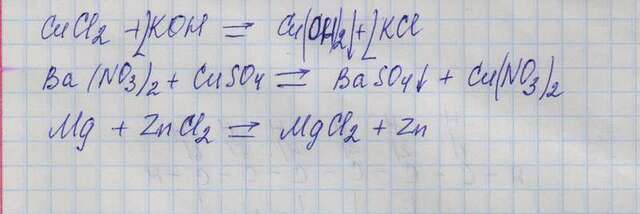 CuCl2 + 2KOH = Cu(OH)2↓ + 2KCl
Ba(NO3)2 + CuSO4 = BaSO4↓ + Cu(NO3)2
Mg + ZnCl2 = MgCl2 + Zn